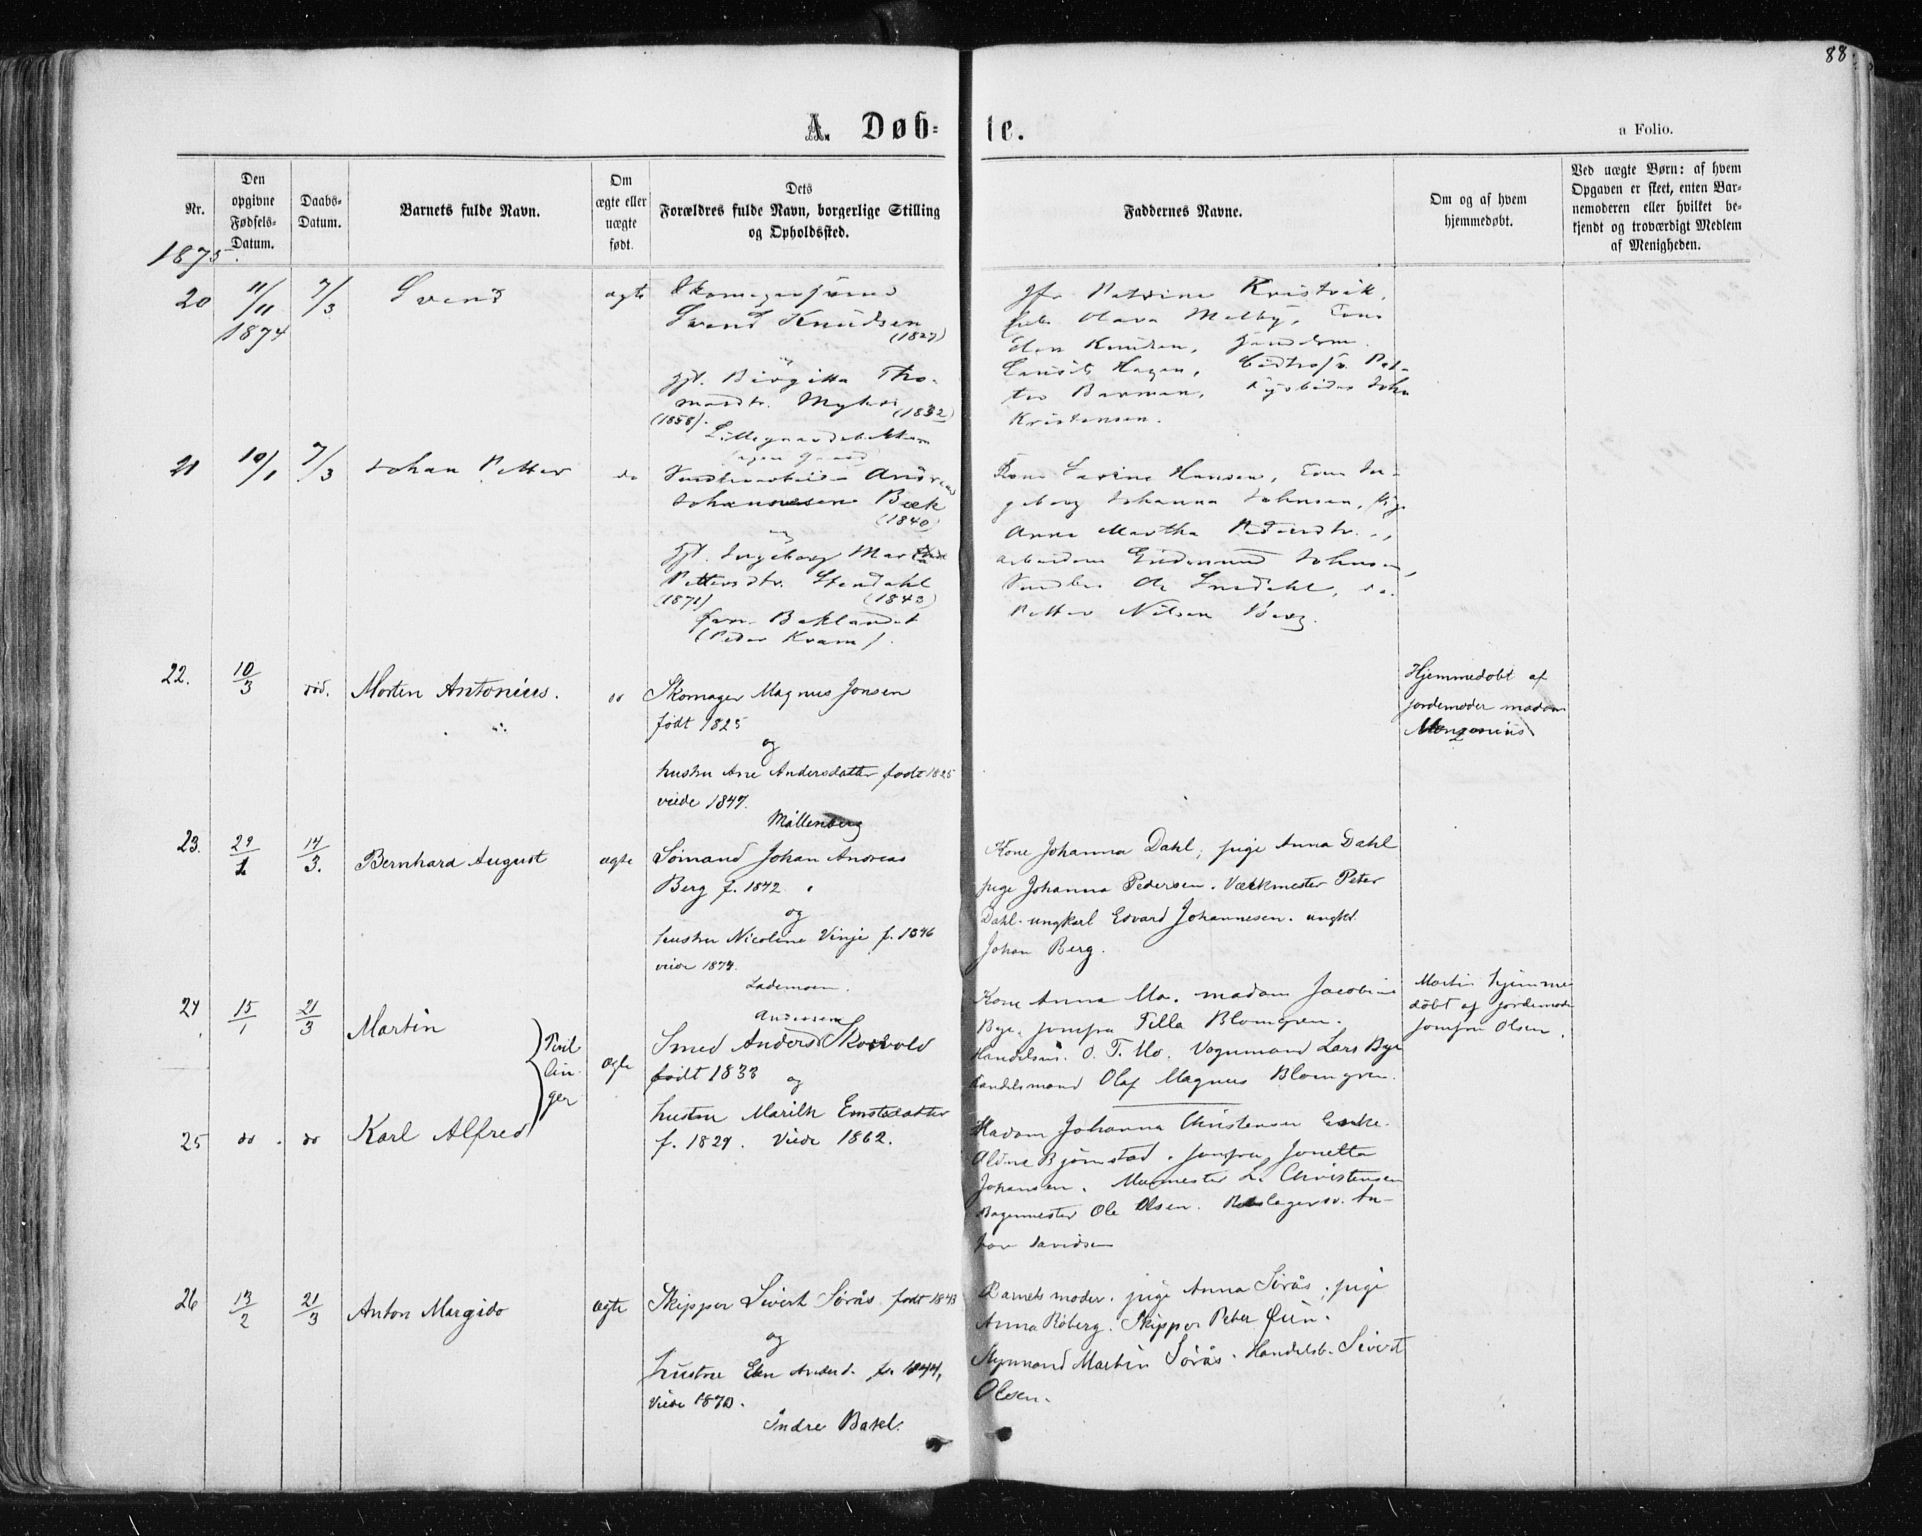 88
A. Døb= te.
a Folio.
Nr.
Den opgivne Fødsels-Datum.
Daabs-Datum.
Barnets fulde Navn.
Om ægte eller uægte født.
Dets Forældres fulde Navn, borgerlige Stilling og Opholdssted.
Faddernes Navne.
Om og af hvem hjemmedøbt.
Ved uægte Børn: af hvem Opgaven er skeet, enten Barnemoderen eller hvilket bekjendt og troværdigt Medlem af Menigheden.
1875.
20 11/11 1874 7/3 Svend ægte
Svend Knudsen
(1827)
og
gjt. Birgitta Tho-
masdtr. Myhre (1832)
(1858).
Jfr Petrine Kristvik,
Olava Melby, Kone
Elen Knudsen,
Hagen, Pet-
ter Barman, John
Kristensen.
21 10/1 7/3 Johan Petter do
Andreas
Johannesen Bæk
(1840)
og
gjt. Ingeborg Martha
Pettersdtr. Stendahl
(1871) (1843)
Baklandet
(Peder Kvam).
Kone Hansen, Kone In-
geborg Johanna Johnsen, Pige
Anna Martha Pedersdtr.,
arbeidsm Gudmund Johnsen,
Ole do.
Petter Nilsen Berg.
22. 10/3 død. Morten Antonius. do
Skomager Magnus Jonsen
født 1825
og
hustru Ane Andersdatter født 1825
viede 1847.
Møllenberg
Hjemmedøbt af
jordemoder madam
23. 29/1 14/3. Bernhard August ægte
Sömand Johan Andreas
Berg f. 1842
og
hustru Nicoline Vinje f. 1846
viede 1874.
Lademoen.
Kone Johanna Dahl, pige Anna Dahl
pige Johanna Pedersen. Værkmester Peter
Dahl. ungkarl Edvard Johannesen. ungkl
Johan Berg.
24 15/1 21/3 Martin
Tvil
lin
ger
ægte
Andersen
Smed Anders Skovold
født 1833
og
hustru Marith Ernstdatter
f. 1829. Viede 1862.
Kone Anna Mo. madam Jacobine
Bye. jomfru Tilla Blomgren.
Handelsm. O. T. Mo. Vognmand Lars Bye
Handelsmand Olaf Magnus Blomgren.
Martin hjemme
døbt af jordemoder
jomfru Olsen.
25 do. do Karl Alfred
Madam Johanna Christensen Enke.
Oline Bjørnstad. jomfru Jonetta
Johansen. Murmester L. Christensen
Bagermester Ole Olsen. Rebslagersv. An-
ton Davidsen
26 13/2 21/3 Anton Margido ægte
Skipper Sivert Sörås født 1843
og
hustru Elen Andersd. f. 1844,
Viede 1870.
Indre Bakl.
Barnets moder. pige Anna Sörås, pige
Anna Röberg. Skipper Peter
Styrmand Martin Sörås. Handelsb. Sivert
Olsen.